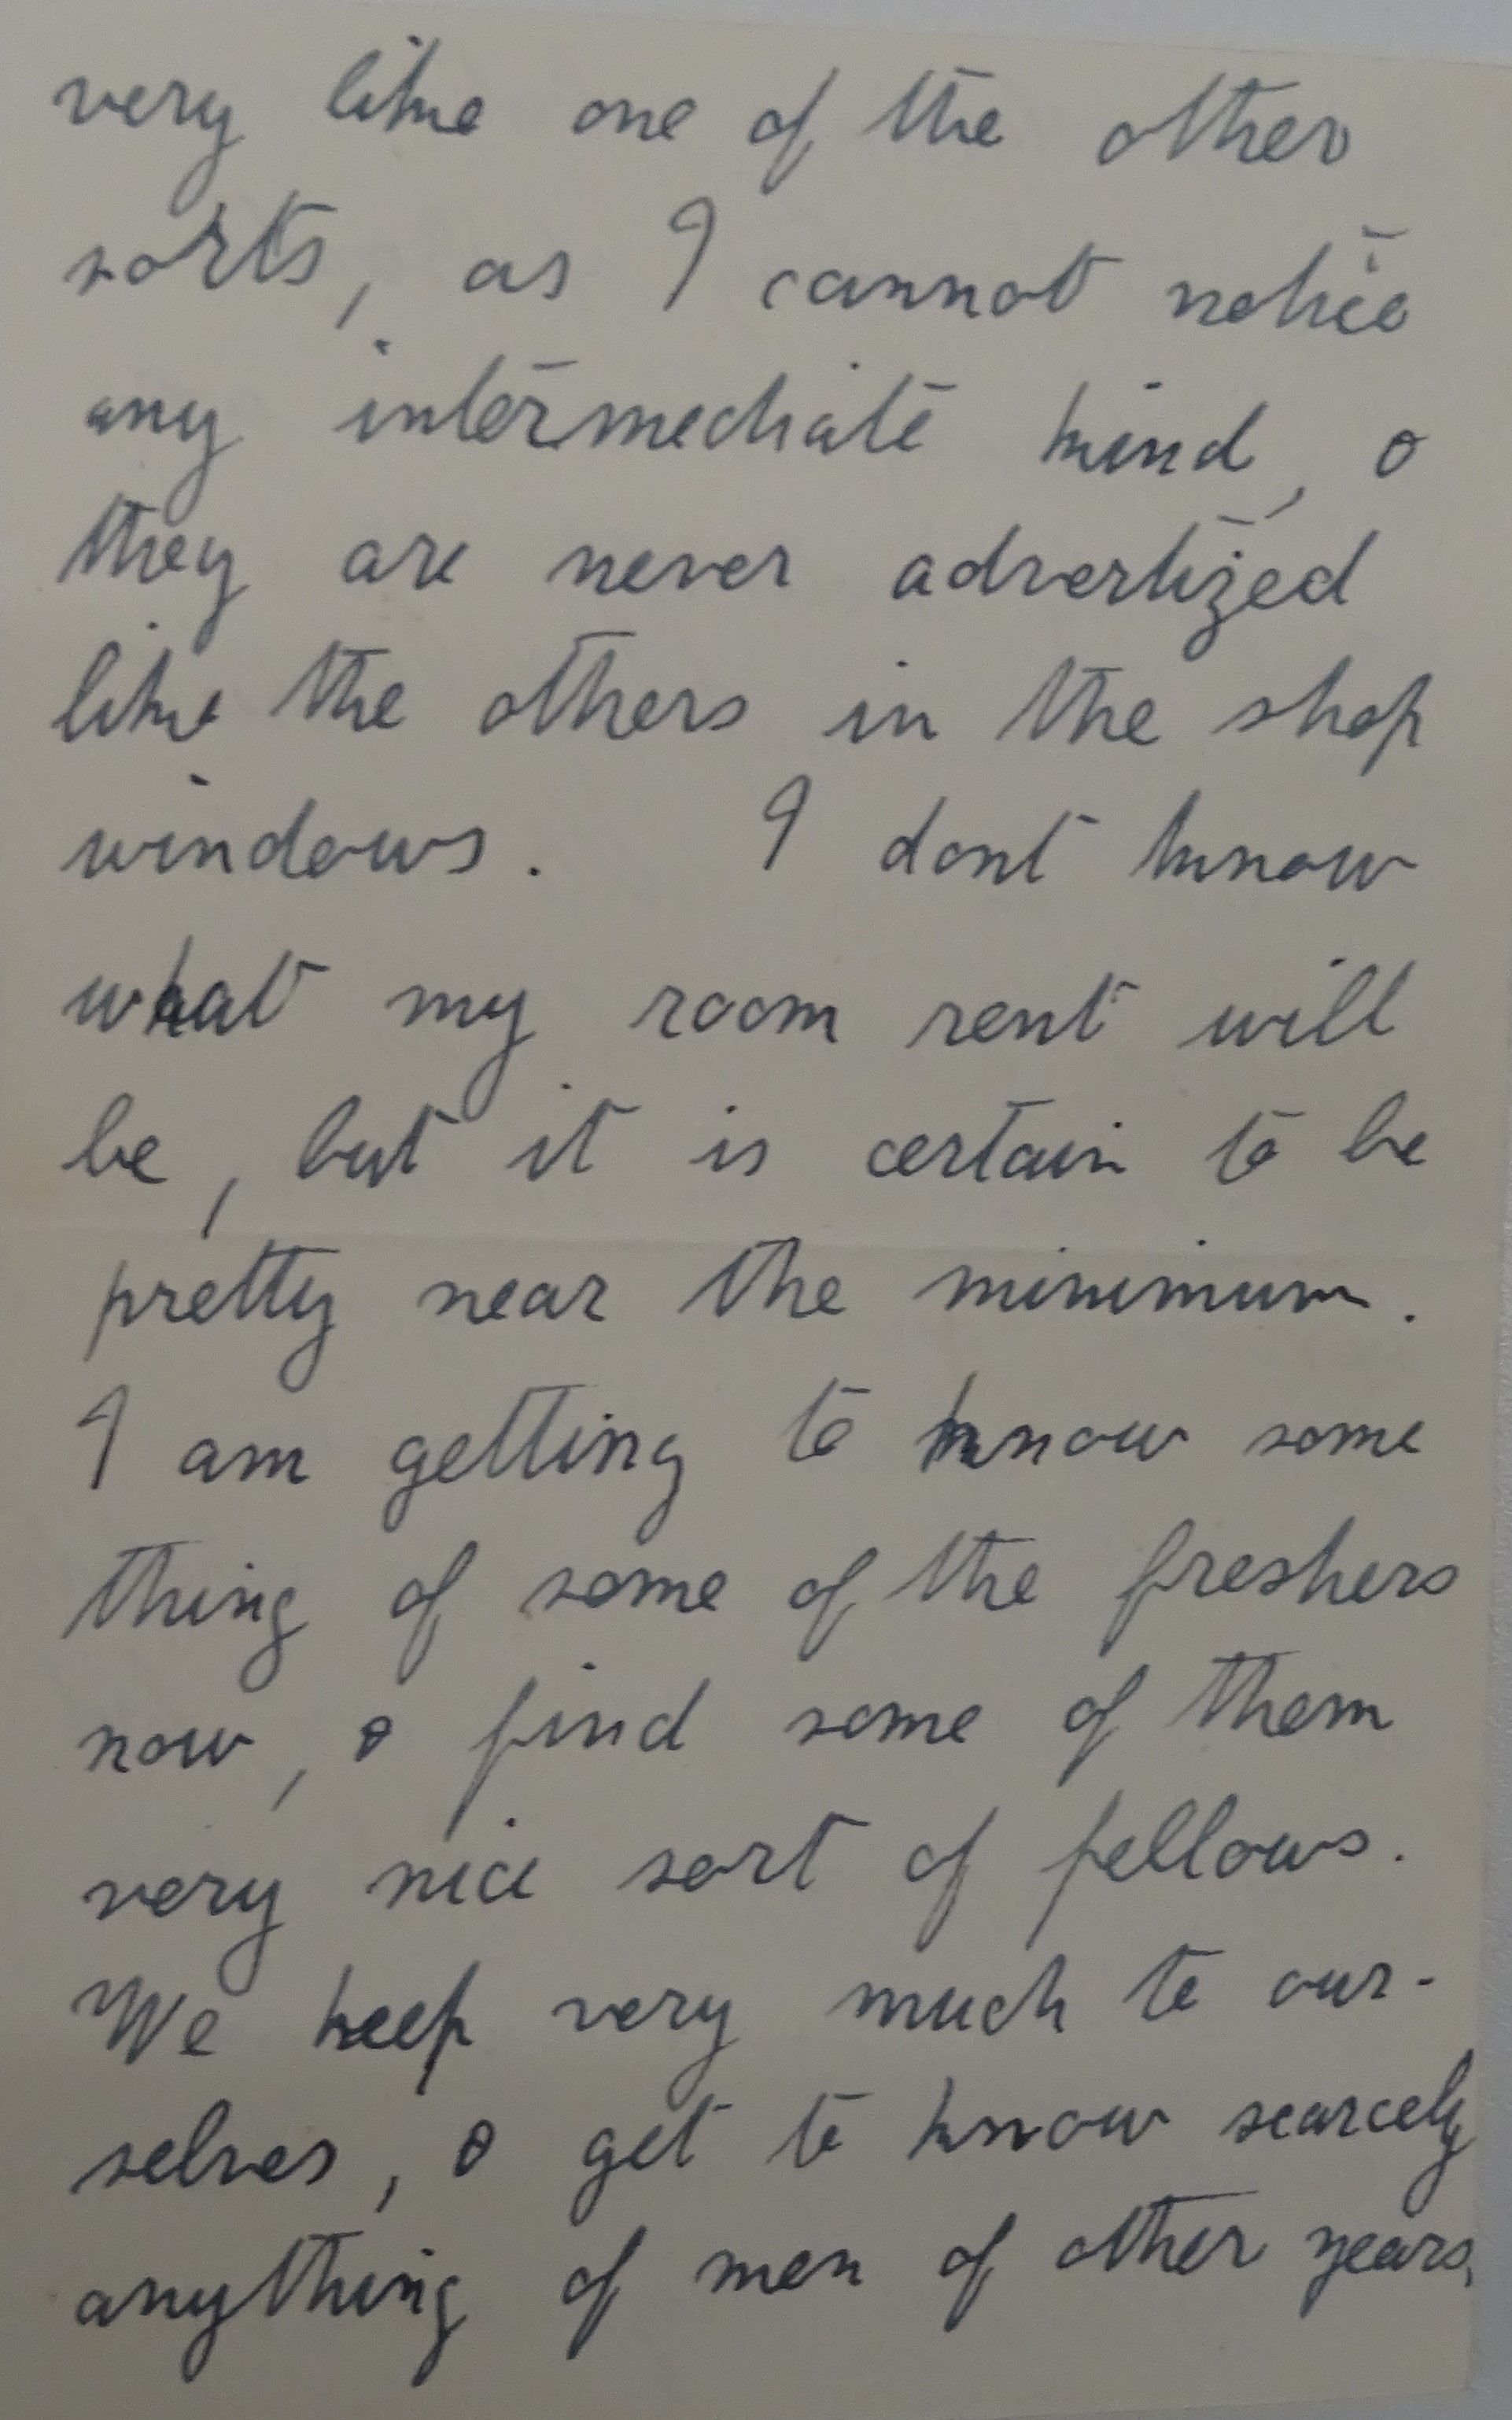 very like one of the other
sorts, as I cannot notice
any intermediate kind, &
they are never advertized
like the others in the shop
windows. I dont know
what my room rent will
be, but it is certain to be
pretty near the minimum.
I am getting to know some
thing of some of the freshers
now, & find some of them
very nice sort of fellows.
We keep very much to our-
selves, & get to know scarcely
anything of men of other years,